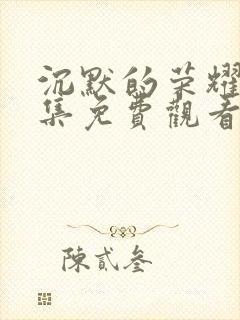 沉默的荣耀
集免費觀看
陳貳叁